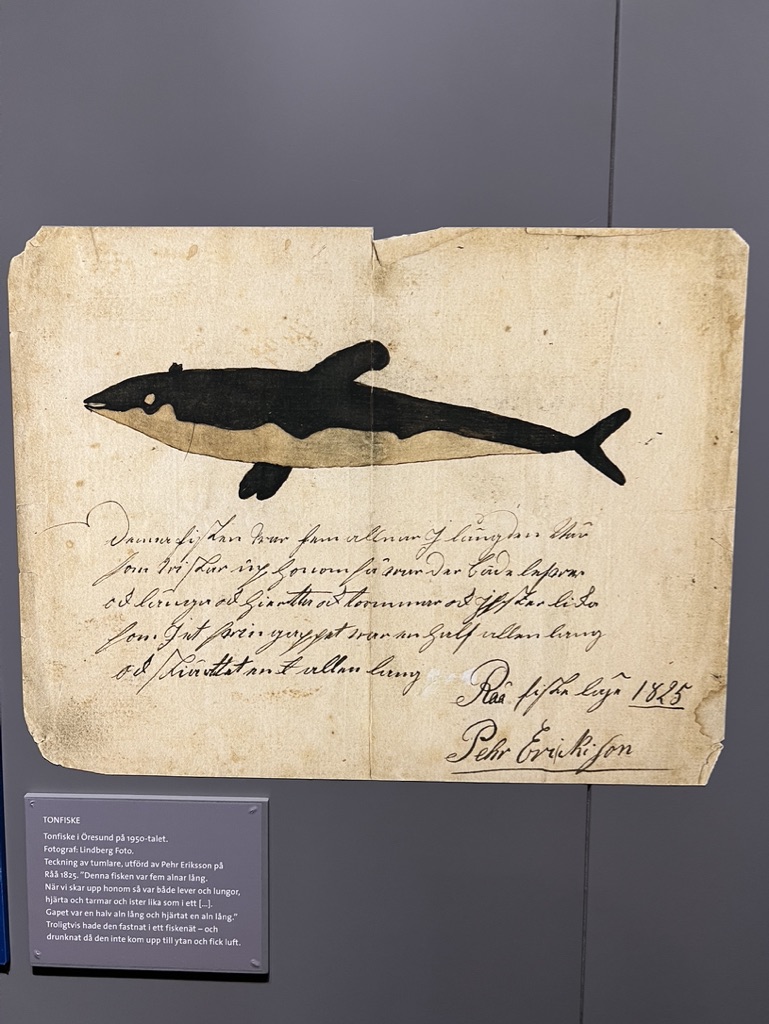 Denna fisken war fem allnar J långden När
som wi skar up honom så war der både lefwer
och långa och hiertta och toommar och Jster lika
som J et swin gappet war en half allen lang
och hiärttet en t allen lang
Råå fiske läge 1825
Pehr Erickison
TONFISKE
Tonfiske i Öresund på 1950-talet.
Fotograf: Lindberg Foto.
Teckning av tumlare, utförd av Pehr Eriksson på
Råå 1825. "Denna fisken var fem alnar lång.
När vi skar upp honom så var både lever och lungor,
hjärta och tarmar och ister lika som i ett [...].
Gapet var en halv aln lång och hjärtat en aln lång."
Troligtvis hade den fastnat i ett fiskenät – och
drunknat då den inte kom upp till ytan och fick luft.